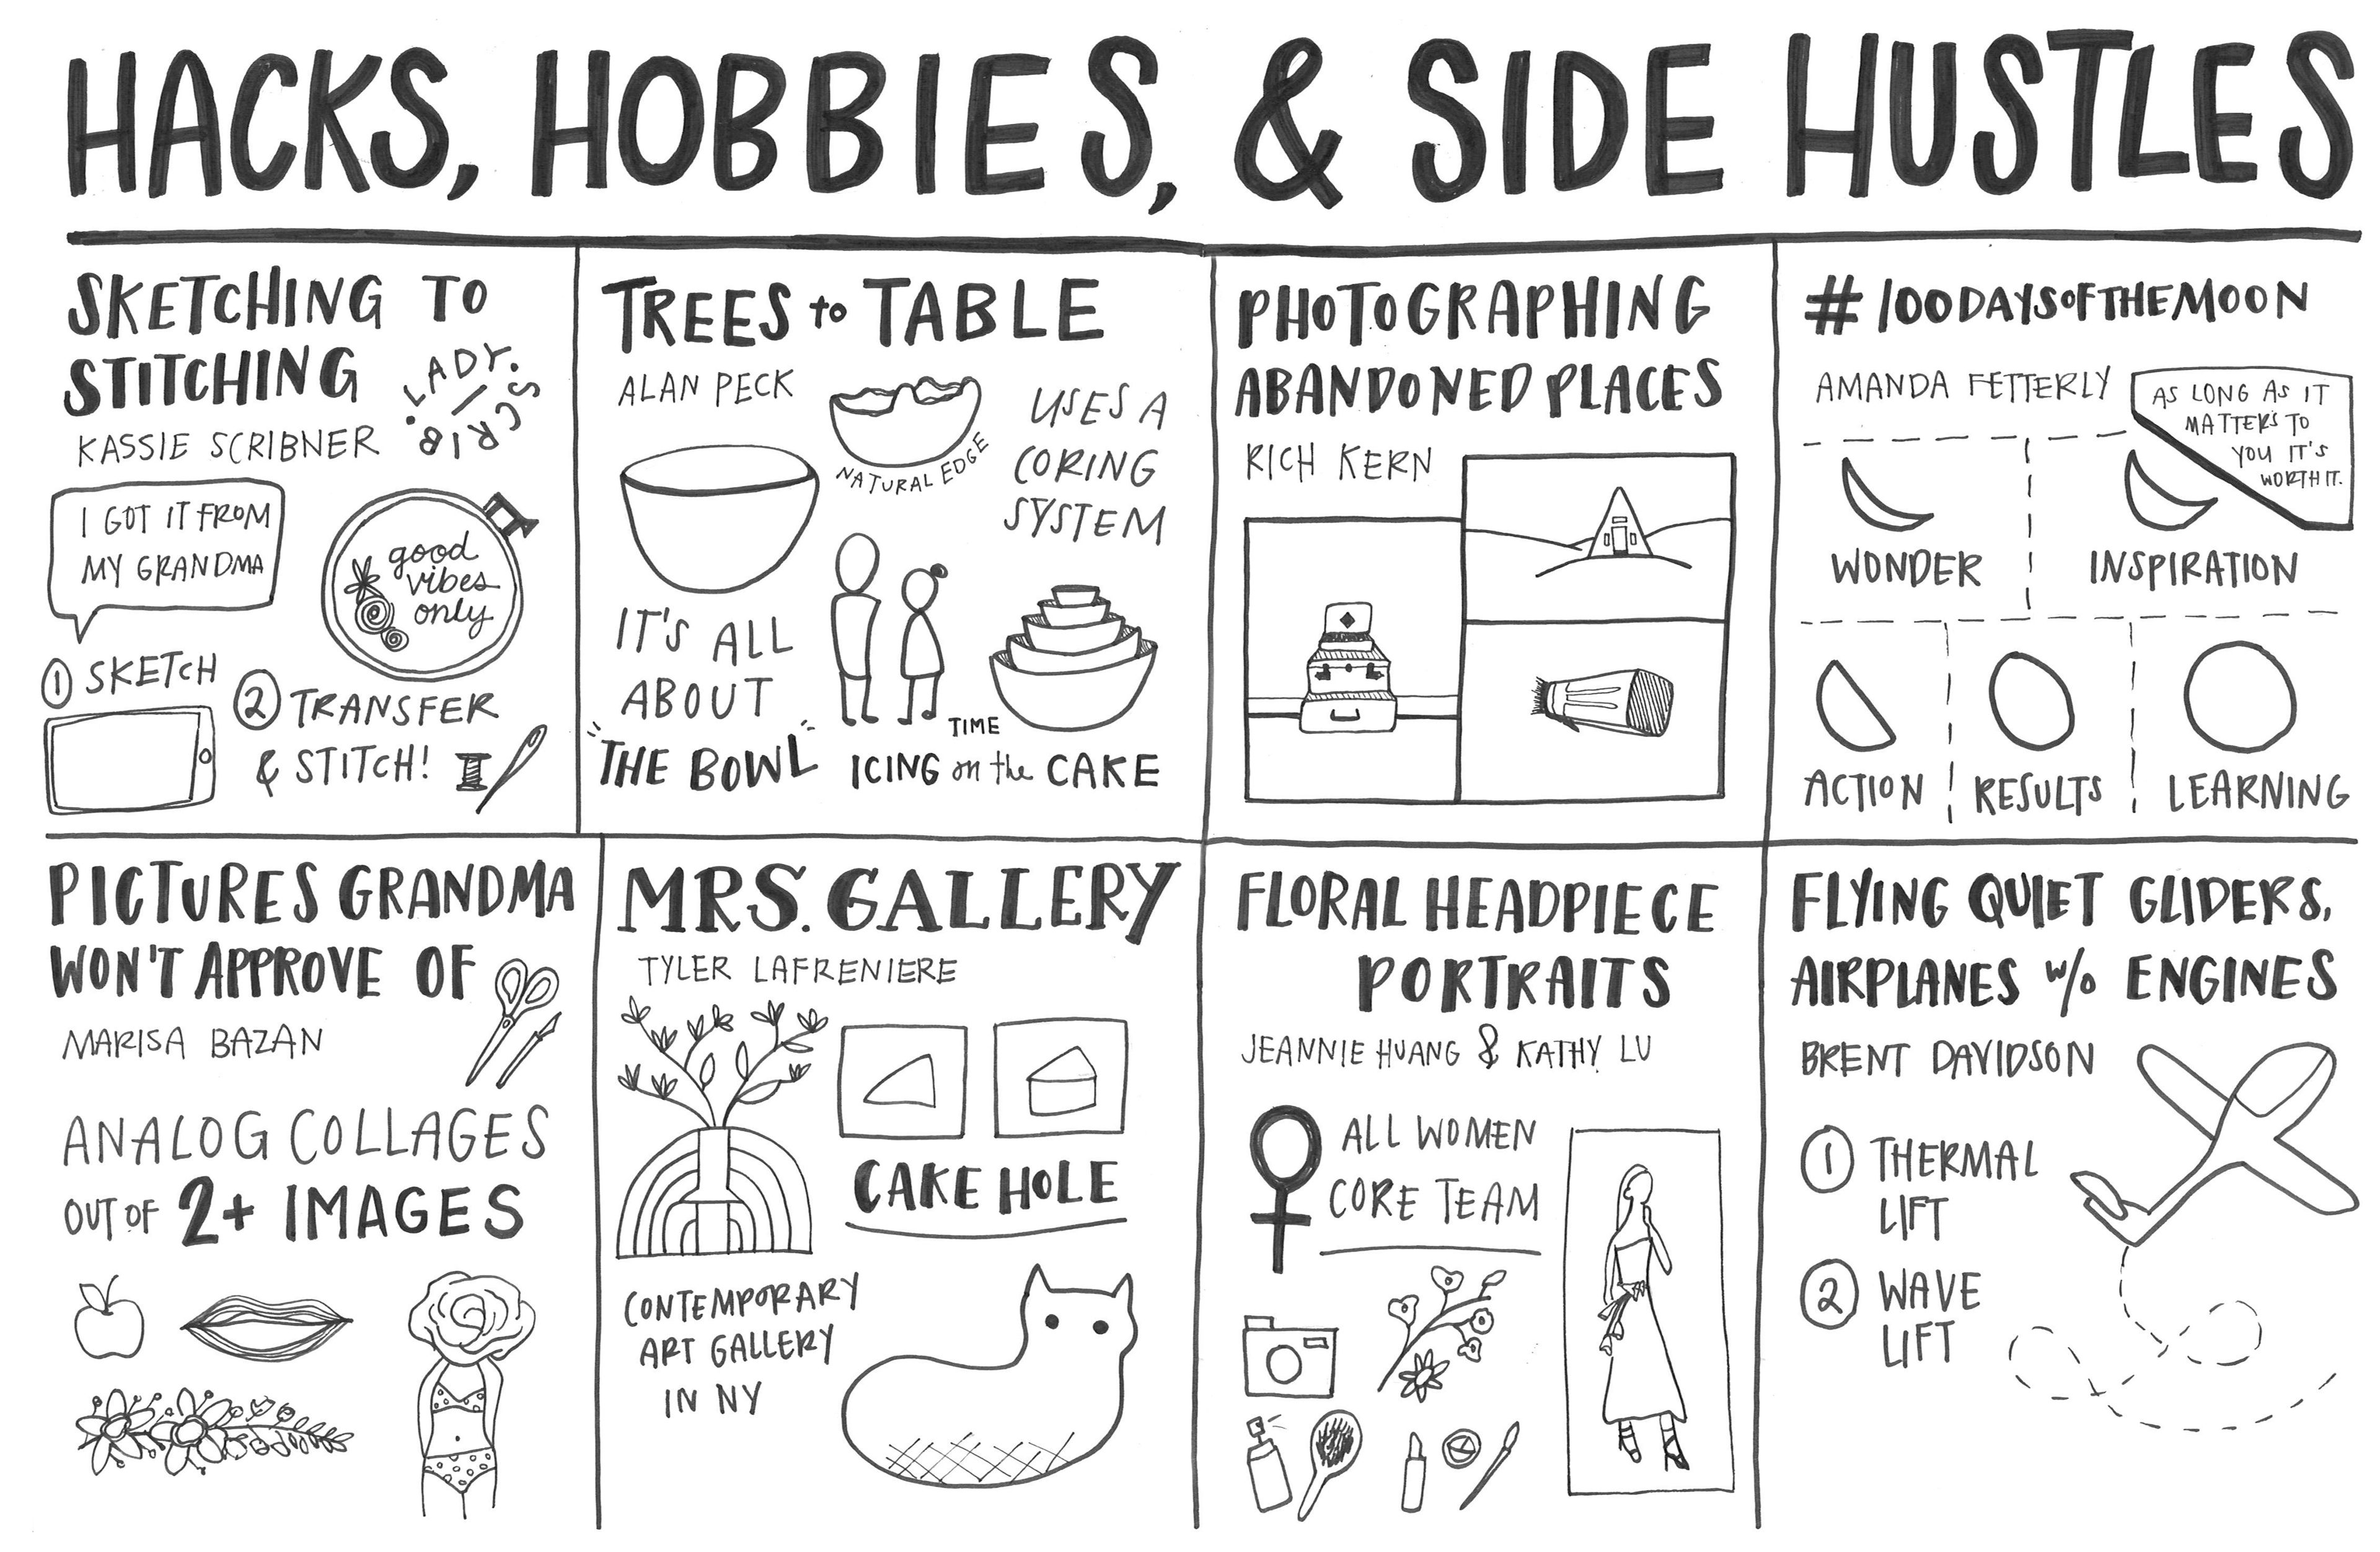 HACKS, HOBBIES, & SIDE HUSTLES
SKETCHING TO
STITCHING
LADY.
SCRIB.
KASSIE SCRIBNER
I GOT IT FROM
MY GRANDMA
good
vibes
only
① SKETCH
② TRANSFER
& STITCH!
TREES to TABLE
ALAN PECK
NATURAL EDGE
USES A
CORING
SYSTEM
IT'S ALL
ABOUT
"THE BOWL"
TIME
ICING on the CAKE
PHOTOGRAPHING
ABANDONED PLACES
RICH KERN
#100DAYSOFTHEMOON
AMANDA FETTERLY
AS LONG AS IT
MATTERS TO
YOU IT'S
WORTH IT.
WONDER
INSPIRATION
ACTION
RESULTS
LEARNING
PICTURES GRANDMA
WON'T APPROVE OF
MARISA BAZAN
ANALOG COLLAGES
OUT OF 2+ IMAGES
MRS. GALLERY
TYLER LAFRENIERE
CAKE HOLE
CONTEMPORARY
ART GALLERY
IN NY
FLORAL HEADPIECE
PORTRAITS
JEANNIE HUANG & KATHY LU
ALL WOMEN
CORE TEAM
FLYING QUIET GLIDERS,
AIRPLANES w/o ENGINES
BRENT DAVIDSON
① THERMAL
LIFT
② WAVE
LIFT